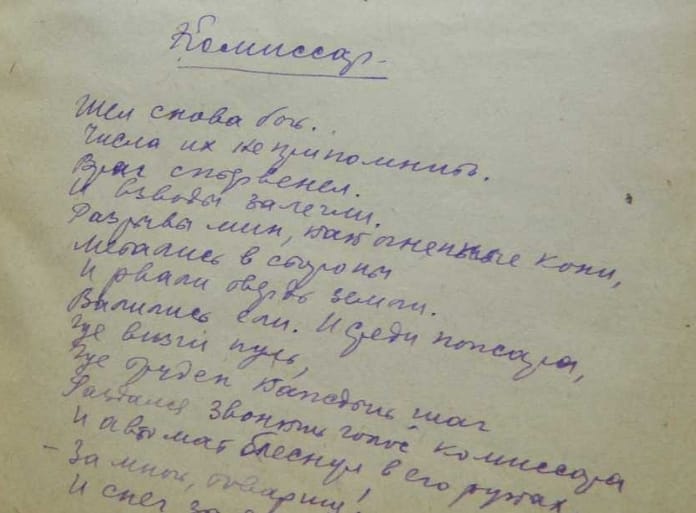 Комиссар.
Шел снова бой.
Числа их не припомнить.
Враг стервенел.
И взводы залегли.
Разрывы мин, как огненные кони,
Метались в стороны
И рвали твердь земли.
Валились ели. И среди пожара,
Где визги пуль,
Где труден каждый шаг
Раздался звонкий голос комиссара
И автомат блеснул в его руках
- За мной, товарищи!
И снег за